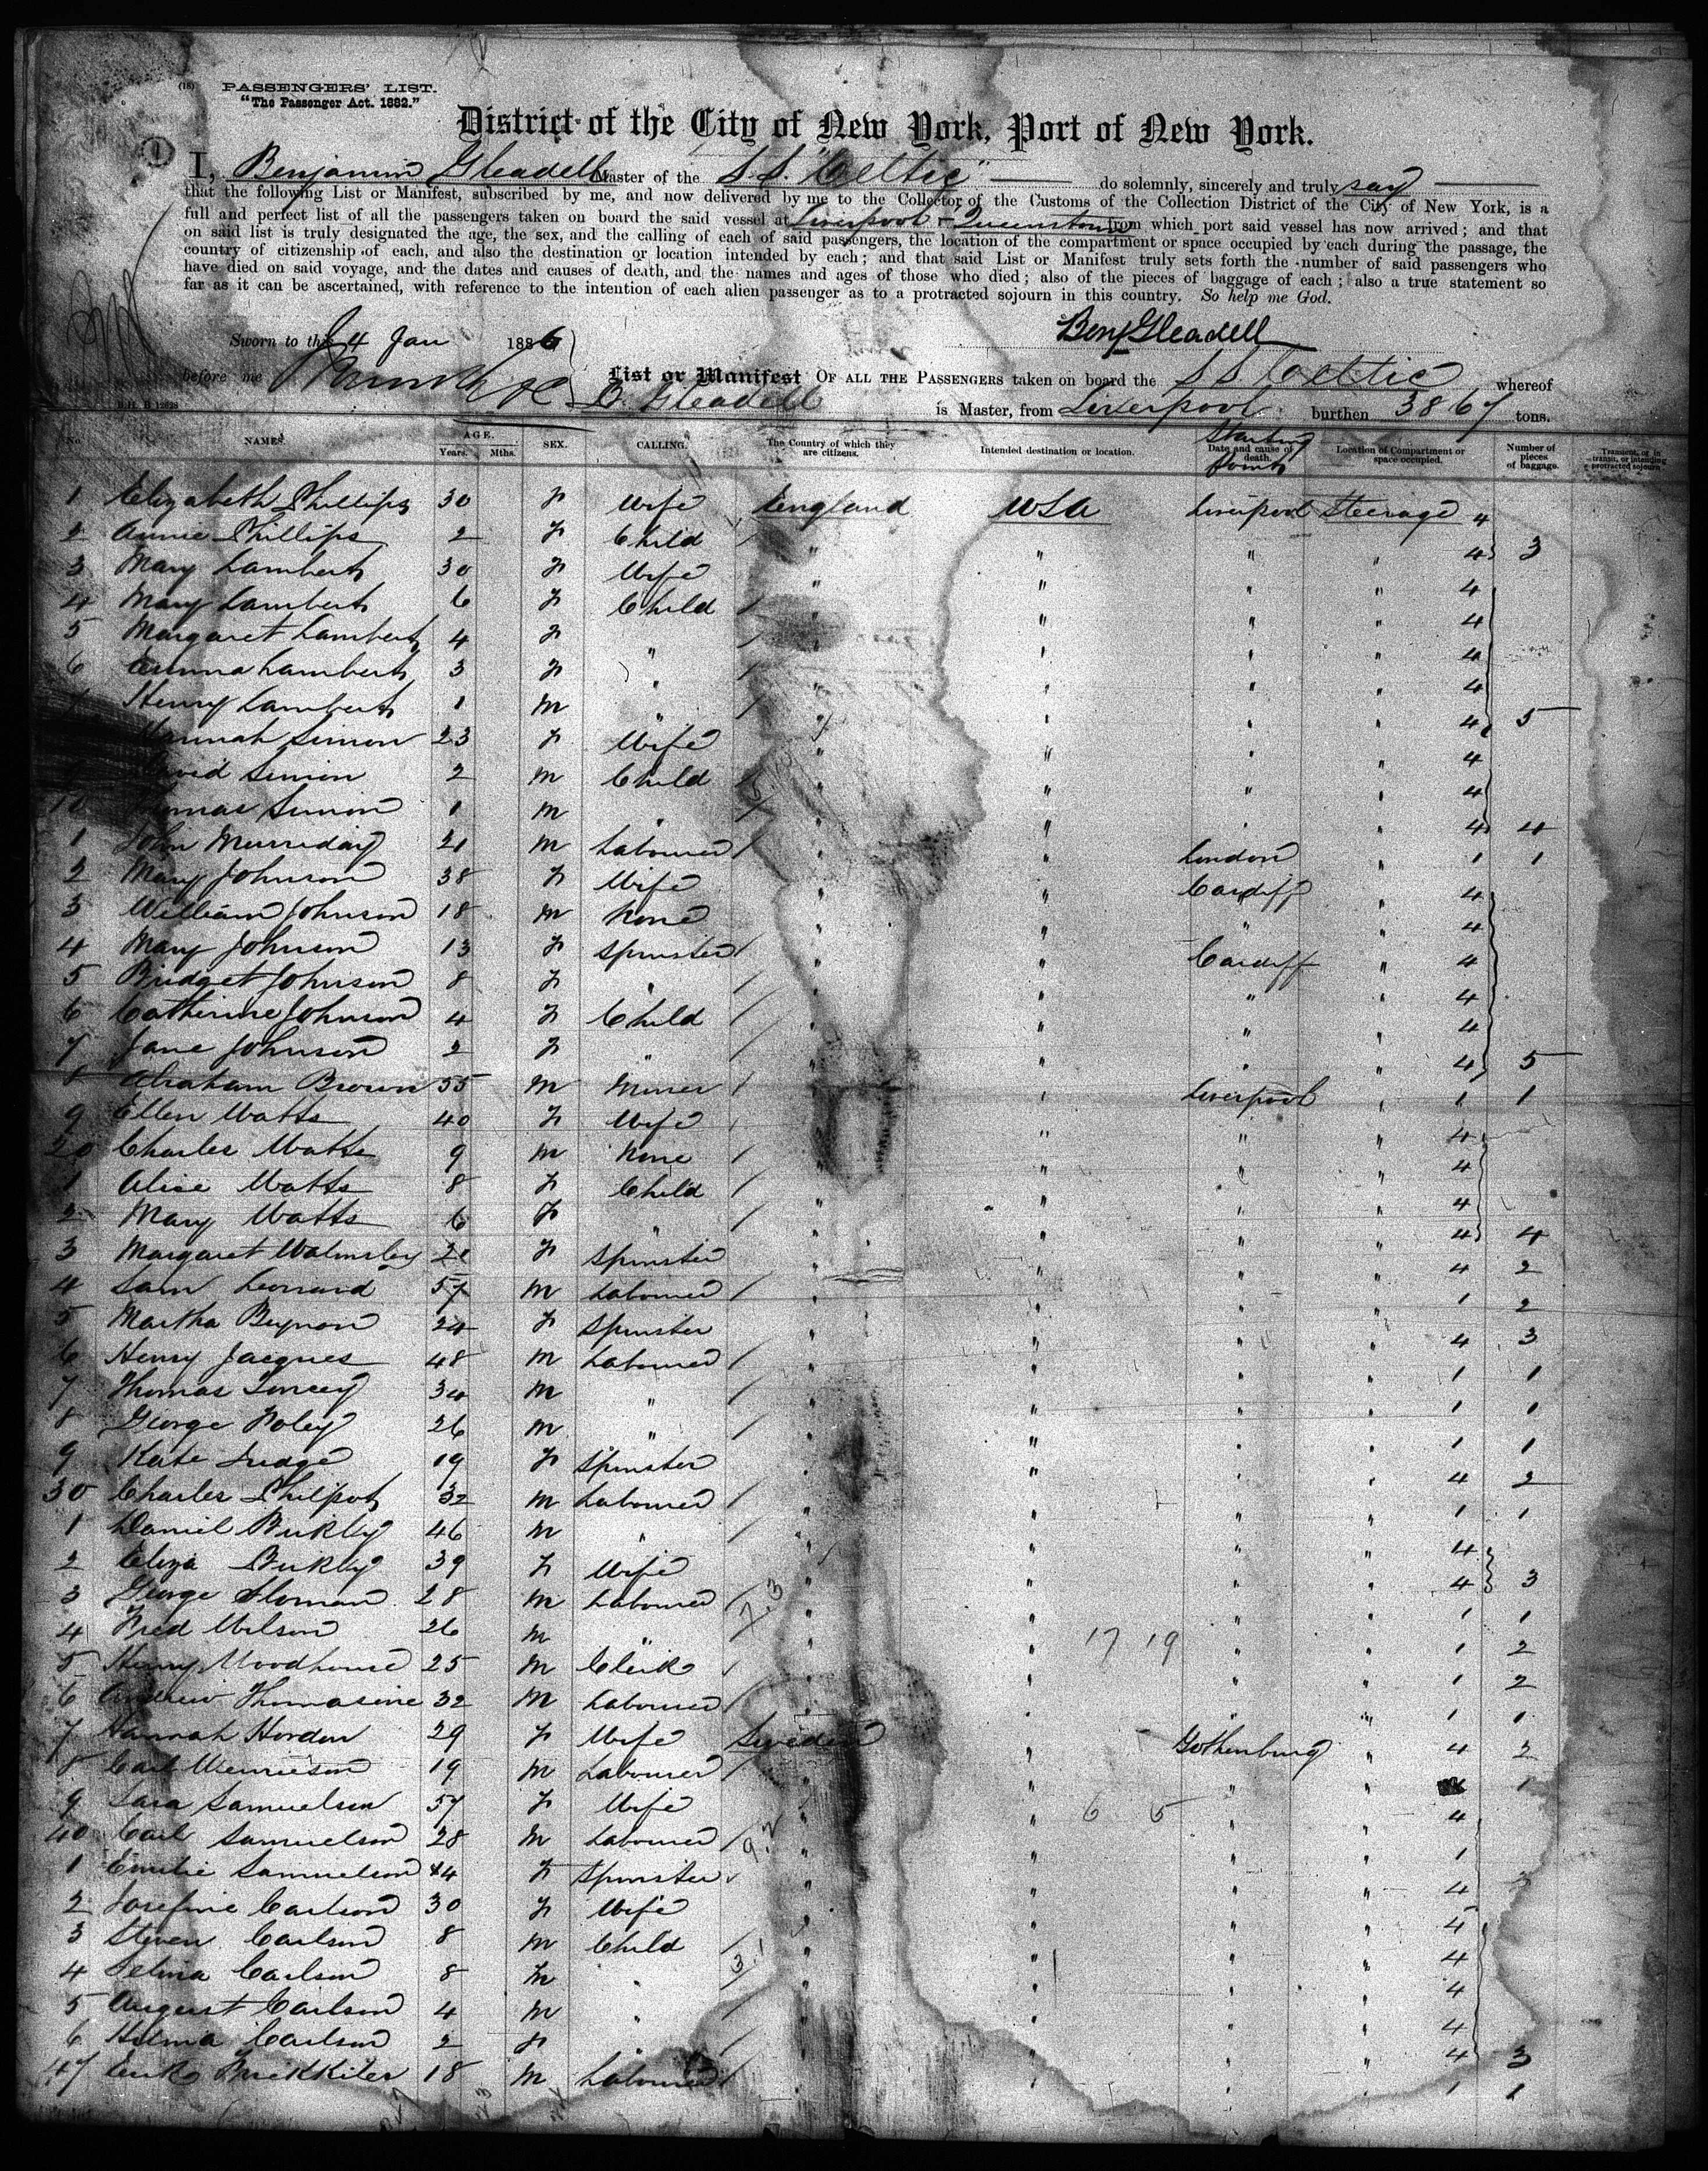 (18) PASSENGERS' LIST.
"The Passenger Act. 1882."
District of the City of New York, Port of New York.
I, Benjamin Gleadell Master of the S.S. "Celtic" do solemnly, sincerely and truly say
that the following List or Manifest, subscribed by me, and now delivered by me to the Collector of the Customs of the Collection District of the City of New York, is a
full and perfect list of all the passengers taken on board the said vessel at Liverpool & Queenstown from which port said vessel has now arrived; and that
on said list is truly designated the age, the sex, and the calling of each of said passengers, the location of the compartment or space occupied by each during the passage, the
country of citizenship of each, and also the destination or location intended by each; and that said List or Manifest truly sets forth the number of said passengers who
have died on said voyage, and the dates and causes of death, and the names and ages of those who died; also of the pieces of baggage of each; also a true statement so
far as it can be ascertained, with reference to the intention of each alien passenger as to a protracted sojourn in this country. So help me God.
Benj Gleadell
Sworn to this 4 Jan 1886
before me
List or Manifest OF ALL THE PASSENGERS taken on board the SS Celtic whereof
B. Gleadell is Master, from Liverpool burthen 3867 tons.
No. NAMES. AGE. Years. Mths. SEX. CALLING. The Country of which they are citizens. Intended destination or location. Starting Point Date and cause of death. Location of Compartment or space occupied. Number of pieces of baggage. Transient, or in transit, or intending protracted sojourn
1 Elizabeth Phillips 30 F Wife England USA Liverpool Steerage 4
2 Annie Phillips 2 F Child " " " " 4 3
3 Mary Lambert 30 F Wife " " " " 4
4 Mary Lambert 6 F Child " " " " 4
5 Margaret Lambert 4 F " " " " " 4
6 Emma Lambert 3 F " " " " " 4
7 Henry Lambert 1 M " " " " " 4 5
Hannah Simon 23 F Wife " " " " 4
David Simon 2 M Child " " " " 4
10 Thomas Simon 1 M " " " " " 4 4
1 John 21 M Labourer " " London " 1 1
2 Mary Johnson 38 F Wife " " Cardiff " 4
3 William Johnson 18 M None " " " " 4
4 Mary Johnson 13 F Spinster " " Cardiff " 4
5 Bridget Johnson 8 F " " " " " 4
6 Catherine Johnson 4 F Child " " " " 4
7 Jane Johnson 2 F " " " " " 4 5
8 Abraham Brown 55 M Miner " " Liverpool " 1 1
9 Ellen Watts 40 F Wife " " " " 4
20 Charles Watts 9 M None " " " " 4
1 Alice Watts 8 F Child " " " " 4
2 Mary Watts 6 F " " " " " 4 4
3 Margaret Walmsley 21 F Spinster " " " " 4 2
4 Sam Leonard 57 M Labourer " " " " 1 2
5 Martha Beynon 24 F Spinster " " " " 4 3
6 Henry Jacques 48 M Labourer " " " " 1 1
7 Thomas 34 M " " " " " 1 1
8 George Foley 26 M " " " " " 1 1
9 Kate Judge 19 F Spinster " " " " 4 2
30 Charles Philpot 32 M Labourer " " " " 1 1
1 Daniel 46 M " " " " " 4
2 Eliza 39 F Wife " " " " 4 3
3 George Sloman 28 M Labourer " " " " 1 1
4 Fred Wilson 26 M " " " 17 19 " " 1 2
5 Henry Woodhouse 25 M Clerk " " " " 1 2
6 Andrew Thomasine 32 M Labourer " " " " 1 1
7 Hannah Hordon 29 F Wife Sweden " Gothenburg " 4 2
8 Carl 19 M Labourer " " " " 1
9 Sara Samuelson 57 F Wife " " 6 5 " " 4
40 Carl Samuelson 28 M Labourer " " " " 1
1 Emilie Samuelson 24 F Spinster " " " " 4
2 Josefine Carlson 30 F Wife " " " " 4
3 Steven Carlson 8 M Child " " " " 4
4 Selma Carlson 8 " " " " " 4
5 August Carlson 4 M " " " " " 4
6 Hilma Carlson 2 F " " " " " 4 3
47 18 M Labourer " " " " 1 1